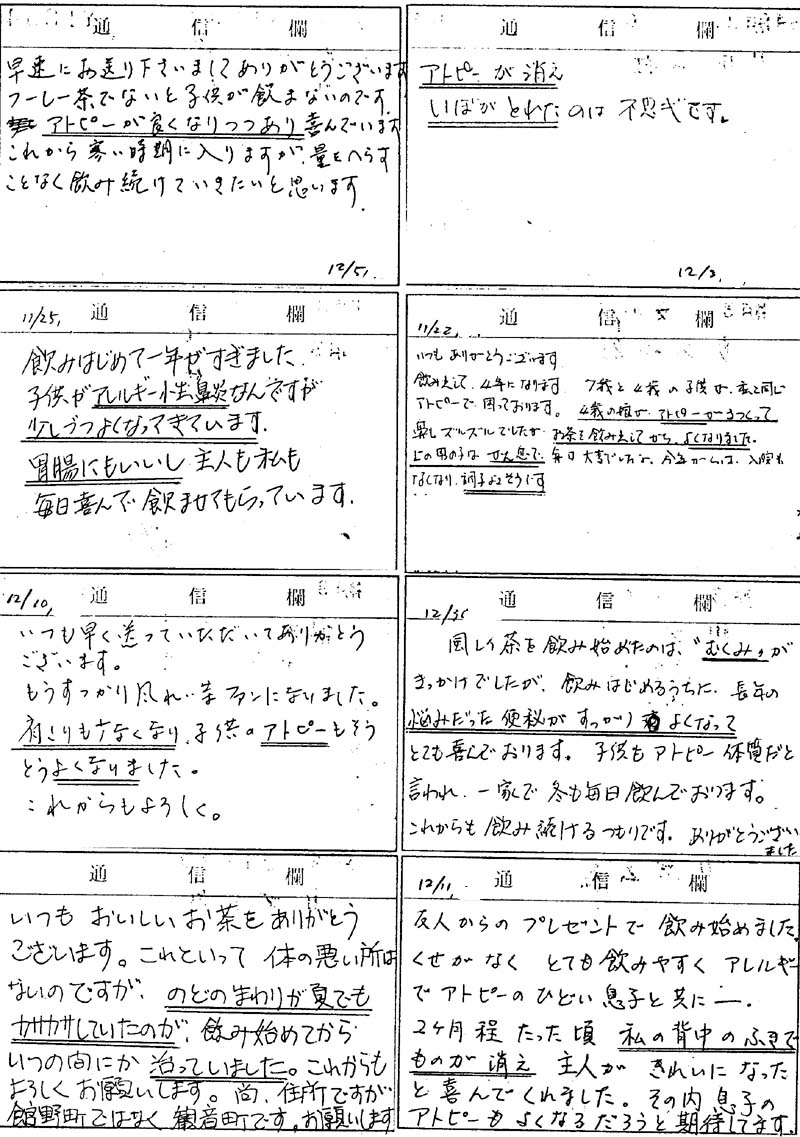 通信欄
早速にお送り下さいましてありがとうございます
フーレー茶でないと子供が飲まないのです。
アトピーが良くなりつつあり喜んでいます
これから寒い時期に入りますが、量をへらす
ことなく飲み続けていきたいと思います
12/5,
通信欄
アトピーが消え
いぼがとれたのは不思ギです。
12/2,
11/25, 通信欄
飲みはじめて一年がすぎました
子供がアレルギー性鼻炎なんですが
少しづつよくなってきています。
胃腸にもいいし主人も私も
毎日喜んで飲ませてもらっています.
通信欄
11/22,
いつもありがとうございます
飲み出して、4年になります 7歳と4歳の子供が、私と同じ
アトピーで困っております。4歳の娘が、アトピーがきつくって
鼻しズルズルでしたが お茶を飲み出してから、よくなりました。
上の男の子はぜん息で、毎日大変でしたが、今年からは、入院も
なくなり、調子よさそうです
12/10, 通信欄
いつも早く送っていただいてありがとう
ございます。
もうすっかり風れい茶ファンになりました。
肩こりも少なくなり、子供のアトピーもそう
とうよくなりました。
これからもよろしく。
通信欄
風レイ茶を飲み始めたのは、"むくみ"が
きっかけでしたが、飲みはじめるうちに、長年の
悩みだった便秘がすっかりよくなって
とても喜んでおります。子供もアトピー体質だと
言われ、一家で冬も毎日飲んでおります。
これからも飲み続けるつもりです。ありがとうござい
ました
通信欄
いつもおいしいお茶をありがとう
ございます。これといって体の悪い所は
ないのですが、のどのまわりが夏でも
カサカサしていたのが、飲み始めてから
いつの間にか治っていました。これからも
よろしくお願いします。尚、住所ですが
館野町ではなく観音町です。お願いします
12/11, 通信欄
友人からのプレゼントで飲み始めました。
くせがなくとても飲みやすくアレルギー
でアトピーのひどい息子と共に―.
2ヶ月程たった頃私の背中のふきで
ものが消え主人がきれいになった
と喜んでくれました。その内息子の
アトピーもよくなるだろうと期待してます。